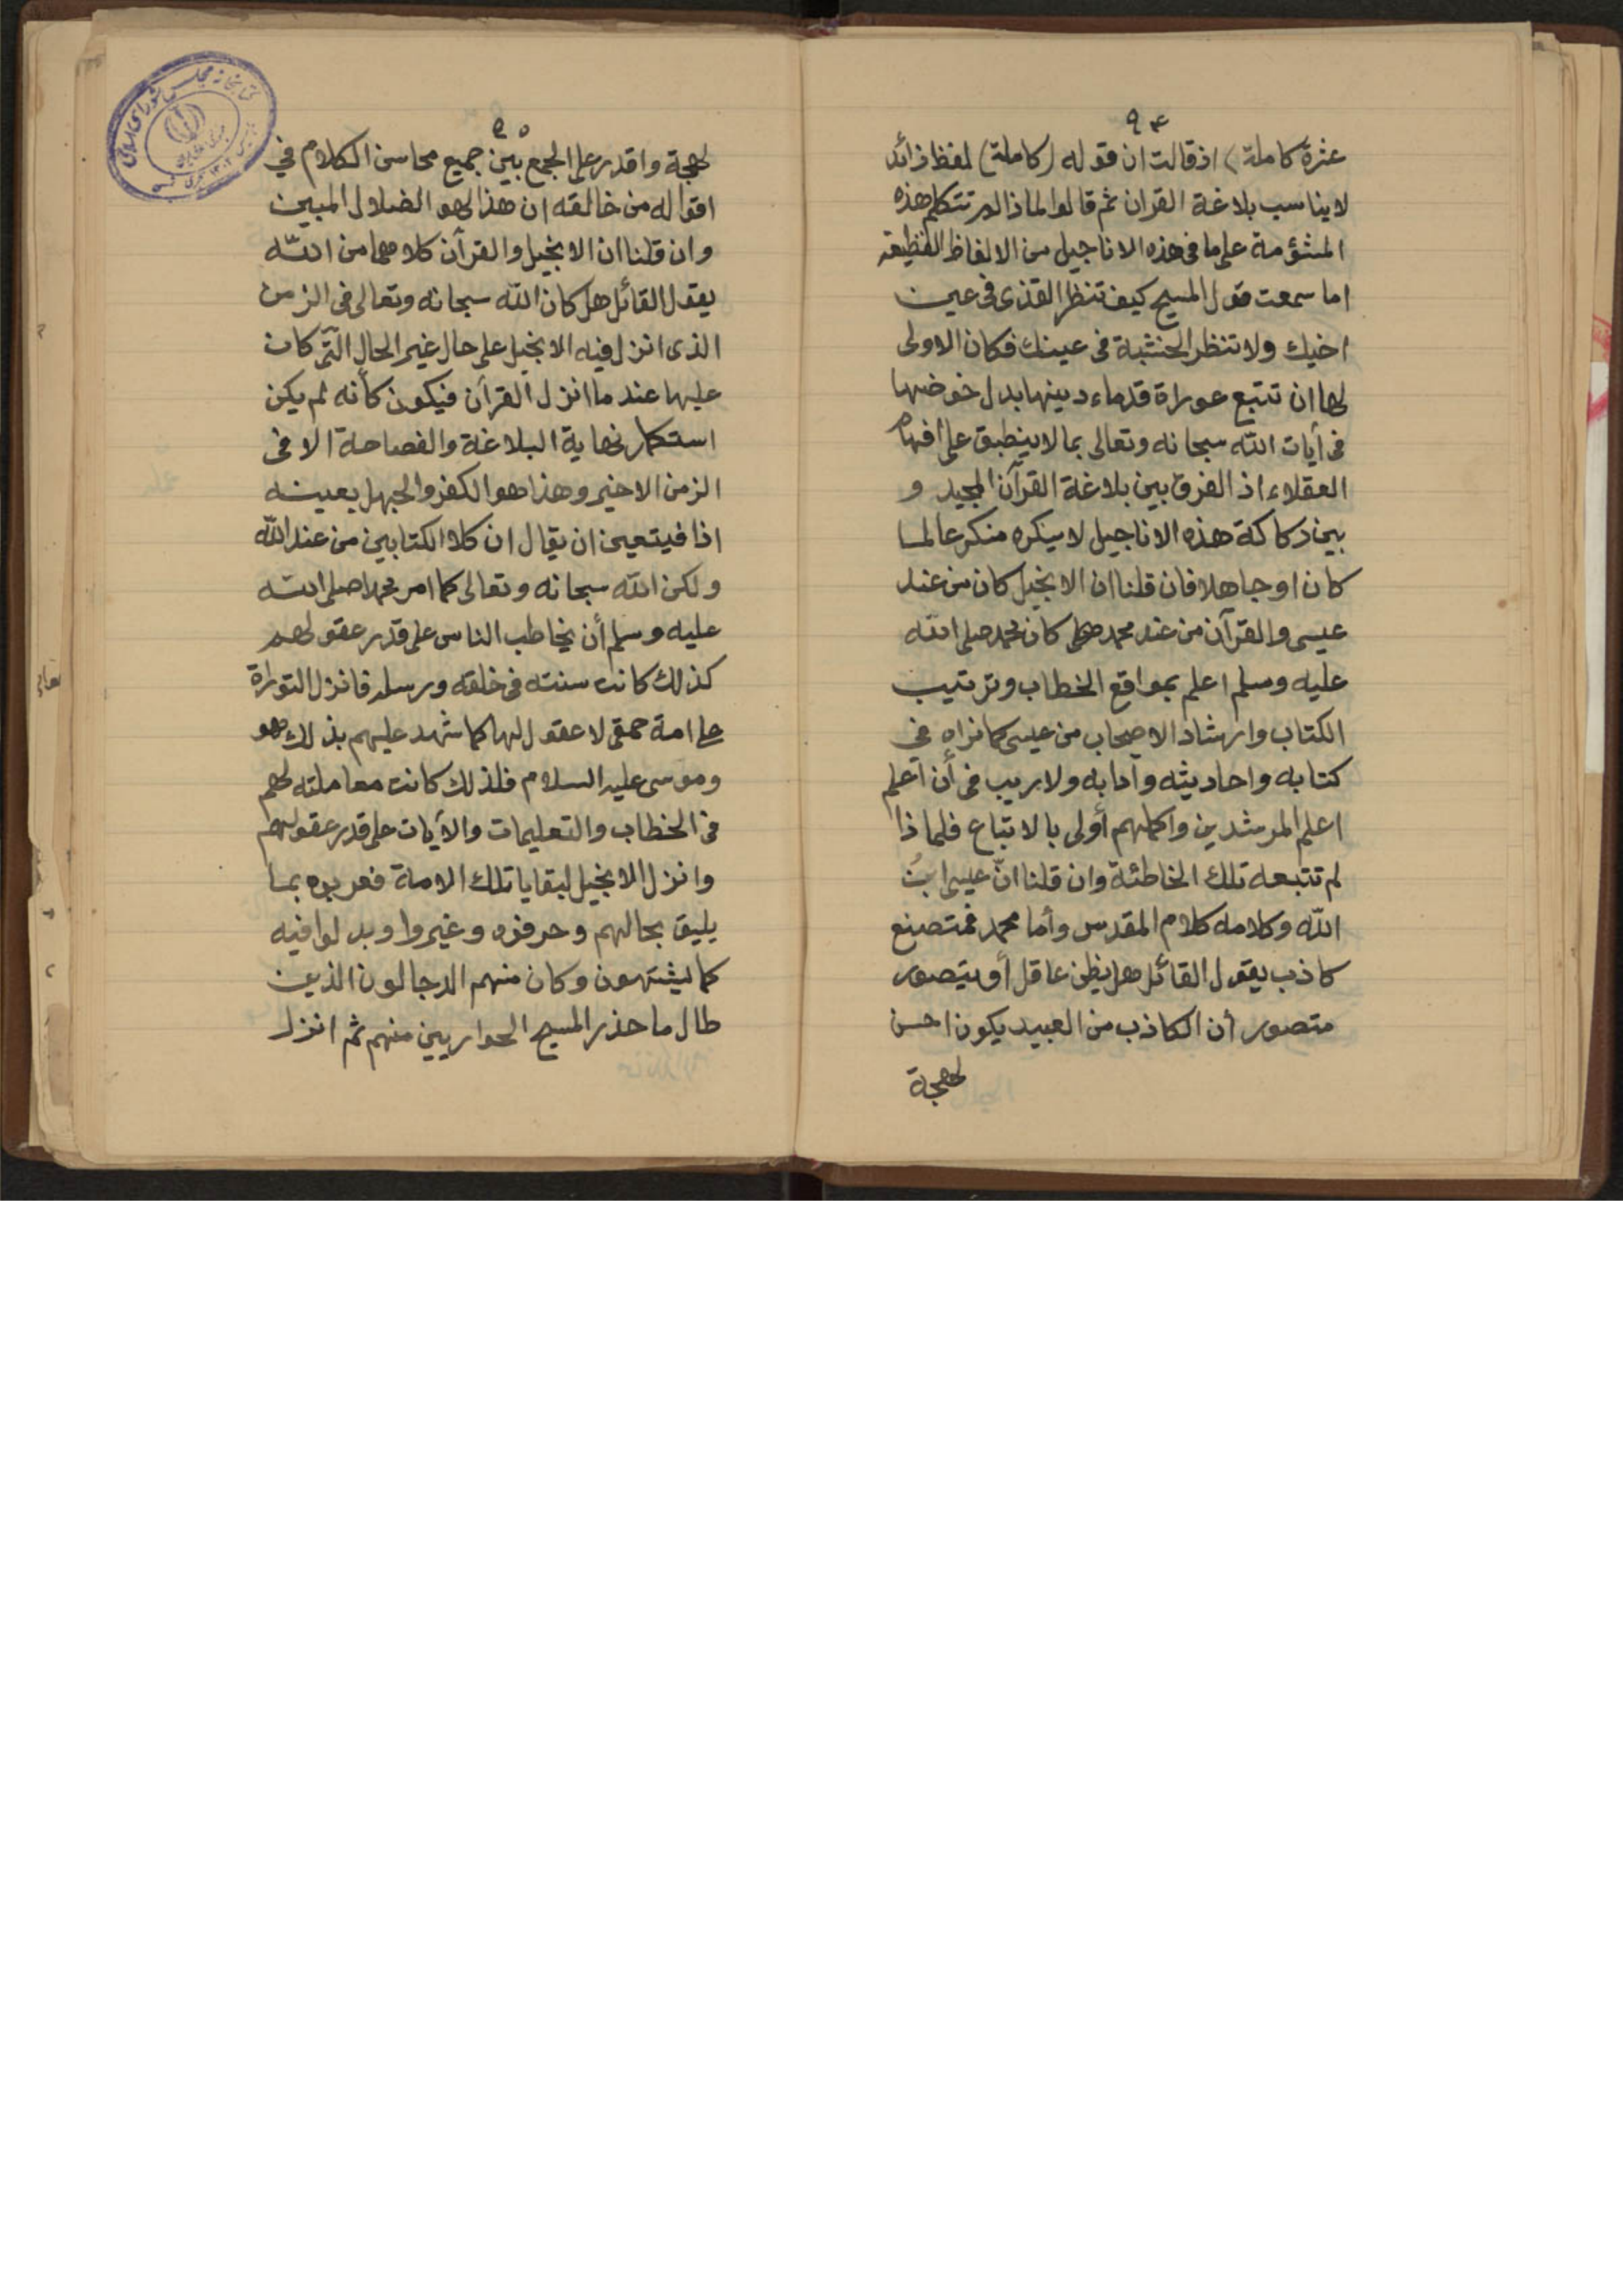 ٩٤
عشرة كاملة) اذ قالت ان قوله (كاملة) لفظ زائد
لا يناسب بلاغة القران ثم قالوا لماذا لم تتكلم هذه
المشؤمة على ما فى هذه الاناجيل من الالفاظ الفظيعة
اما سمعت قول المسيح كيف تنظر القذى فى عين
اخيك ولا تنظر الخشبة فى عينك فكان الاولى
لها ان تتبع عوراة قدماء دينها بدل خوضها
فى آيات اللّه سبحانه وتعالى بما لا ينطبق على افهام
العقلاء اذ الفرق بين بلاغة القرآن المجيد و
بين ركاكة هذه الاناجيل لا ينكره منكر عالما
كان او جاهلا فان قلنا ان الانجيل كان من عند
عيسى والقرآن من عند محمد كان محمد صلى اللّه
عليه وسلم اعلم بمواقع الخطاب وترتيب
الكتاب وارشاد الاصحاب من عيسى كما نراه فى
كتابه واحاديثه وآدابه ولا ريب فى أن اعلم
اعلم المرشدين واكملهم أولى بالاتباع فلماذا
لم تتبعه تلك الخاطئة وان قلنا انّ عيسى ابنُ
اللّه وكلامه كلام المقدس وأما محمد فمتصنع
كاذب يقول القائل هل يظن عاقل أو يتصور
متصور أن الكاذب من العبيد يكون احسن
لهجة
٩٥
لهجة واقدر على الجمع بين جميع محاسن الكلام في
اقواله من خالقه ان هذا لهو الضلال المبين
وان قلنا ان الانجيل والقرآن كلاهما من اللّه
يقول القائل هل كان اللّه سبحانه وتعالى فى الزمن
الذى انزل فيه الانجيل على حال غير الحال التى كان
عليها عند ما انزل القرآن فيكون كأنه لم يكن
استكمل نهاية البلاغة والفصاحة الا فى
الزمن الاخير وهذا هو الكفر والجهل بعينه
اذا فيتعين ان يقال ان كلا الكتابين من عند اللّه
ولكن اللّه سبحانه وتعالى كما امر محمدا صلى اللّه
عليه وسلم أن يخاطب الناس على قدر عقولهم
كذلك كانت سنته فى خلقه ورسله فانزل التوراة
على امة حمقى لا عقول لها كما شهد عليهم بذلك هو
وموسى عليه السلام فلذلك كانت معاملته لهم
فى الخطاب والتعليمات والآيات على قدر عقولهم
وانزل الانجيل لبقايا تلك الامة فعربوه بما
يليق بحالهم وحرفوه وغيروا وبدلوا فيه
كما يشتهون وكان منهم الدجالون الذين
طال ما حذر المسيح الحواريين منهم ثم انزل